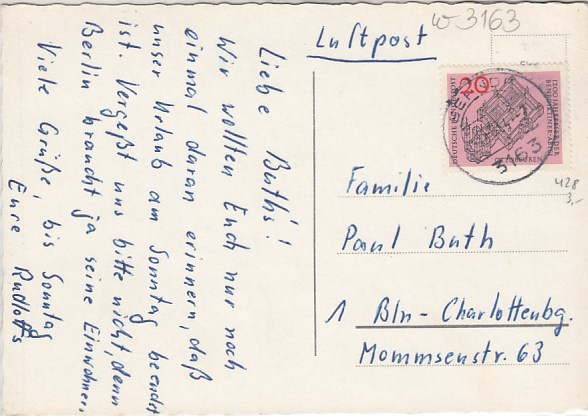 Luftpost
w 3163
Liebe Buth's!
Wir wollten Euch nur noch
einmal daran erinnern, daß
unser Urlaub am Sonntag beendet
ist. Vergeßt uns bitte nicht, denn
Berlin braucht ja seine Einwohner.
Viele Grüße, bis Sonntag
Eure Rudloffs
20
DEUTSCHE BUNDESPOST
1200 JAHRE
BENEDIKTINER ABTEI
OTTOBEUREN
3163
428
3,-
Familie
Paul Buth
1 Bln-Charlottenbg.
Mommsenstr. 63